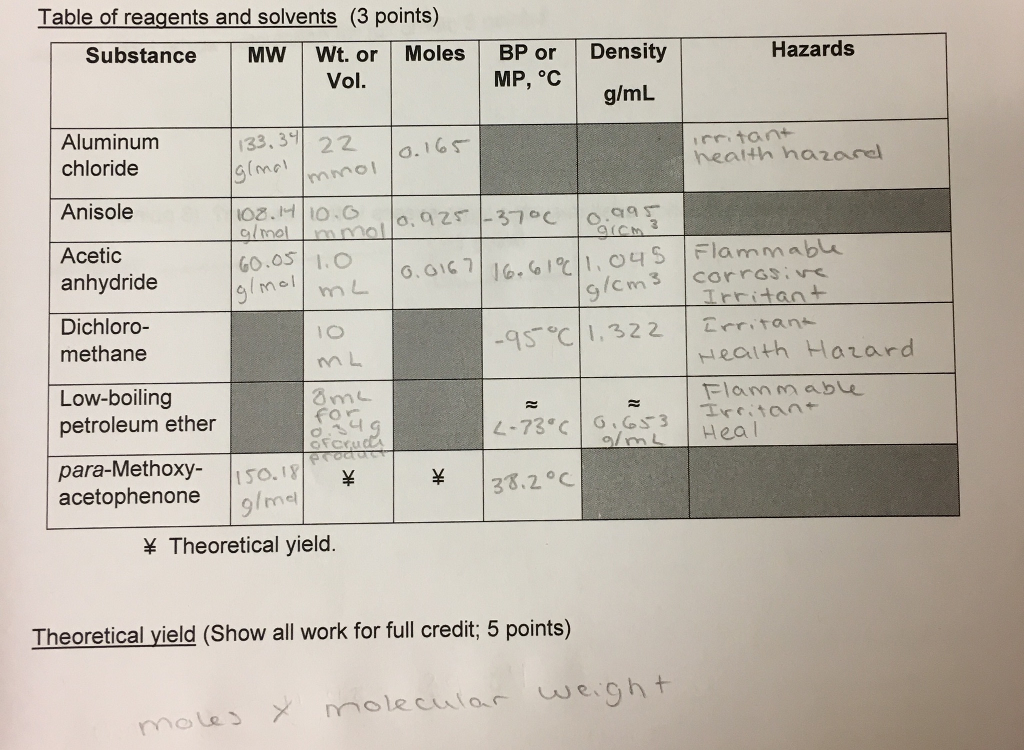 Table of reagents and solvents (3 points)
Substance MW Wt. or Vol. Moles BP or MP, °C Density g/mL Hazards
Aluminum chloride 133.34 g/mol 22 mmol 0.165 irritant health hazard
Anisole 108.14 g/mol 10.0 mmol 0.925 -37°C 0.995 g/cm³
Acetic anhydride 60.05 g/mol 1.0 mL 0.0167 16.61°C 1.045 g/cm³ Flammable corrosive Irritant
Dichloro-methane 10 mL -95°C 1.322 Irritant Health Hazard
Low-boiling petroleum ether 8mL for 0.34g of crude product ≈ <-73°C ≈ 0.653 g/mL Flammable Irritant Heal
para-Methoxy-acetophenone 150.18 g/mol ¥ ¥ 38.2°C
¥ Theoretical yield.
Theoretical yield (Show all work for full credit; 5 points)
moles x molecular weight